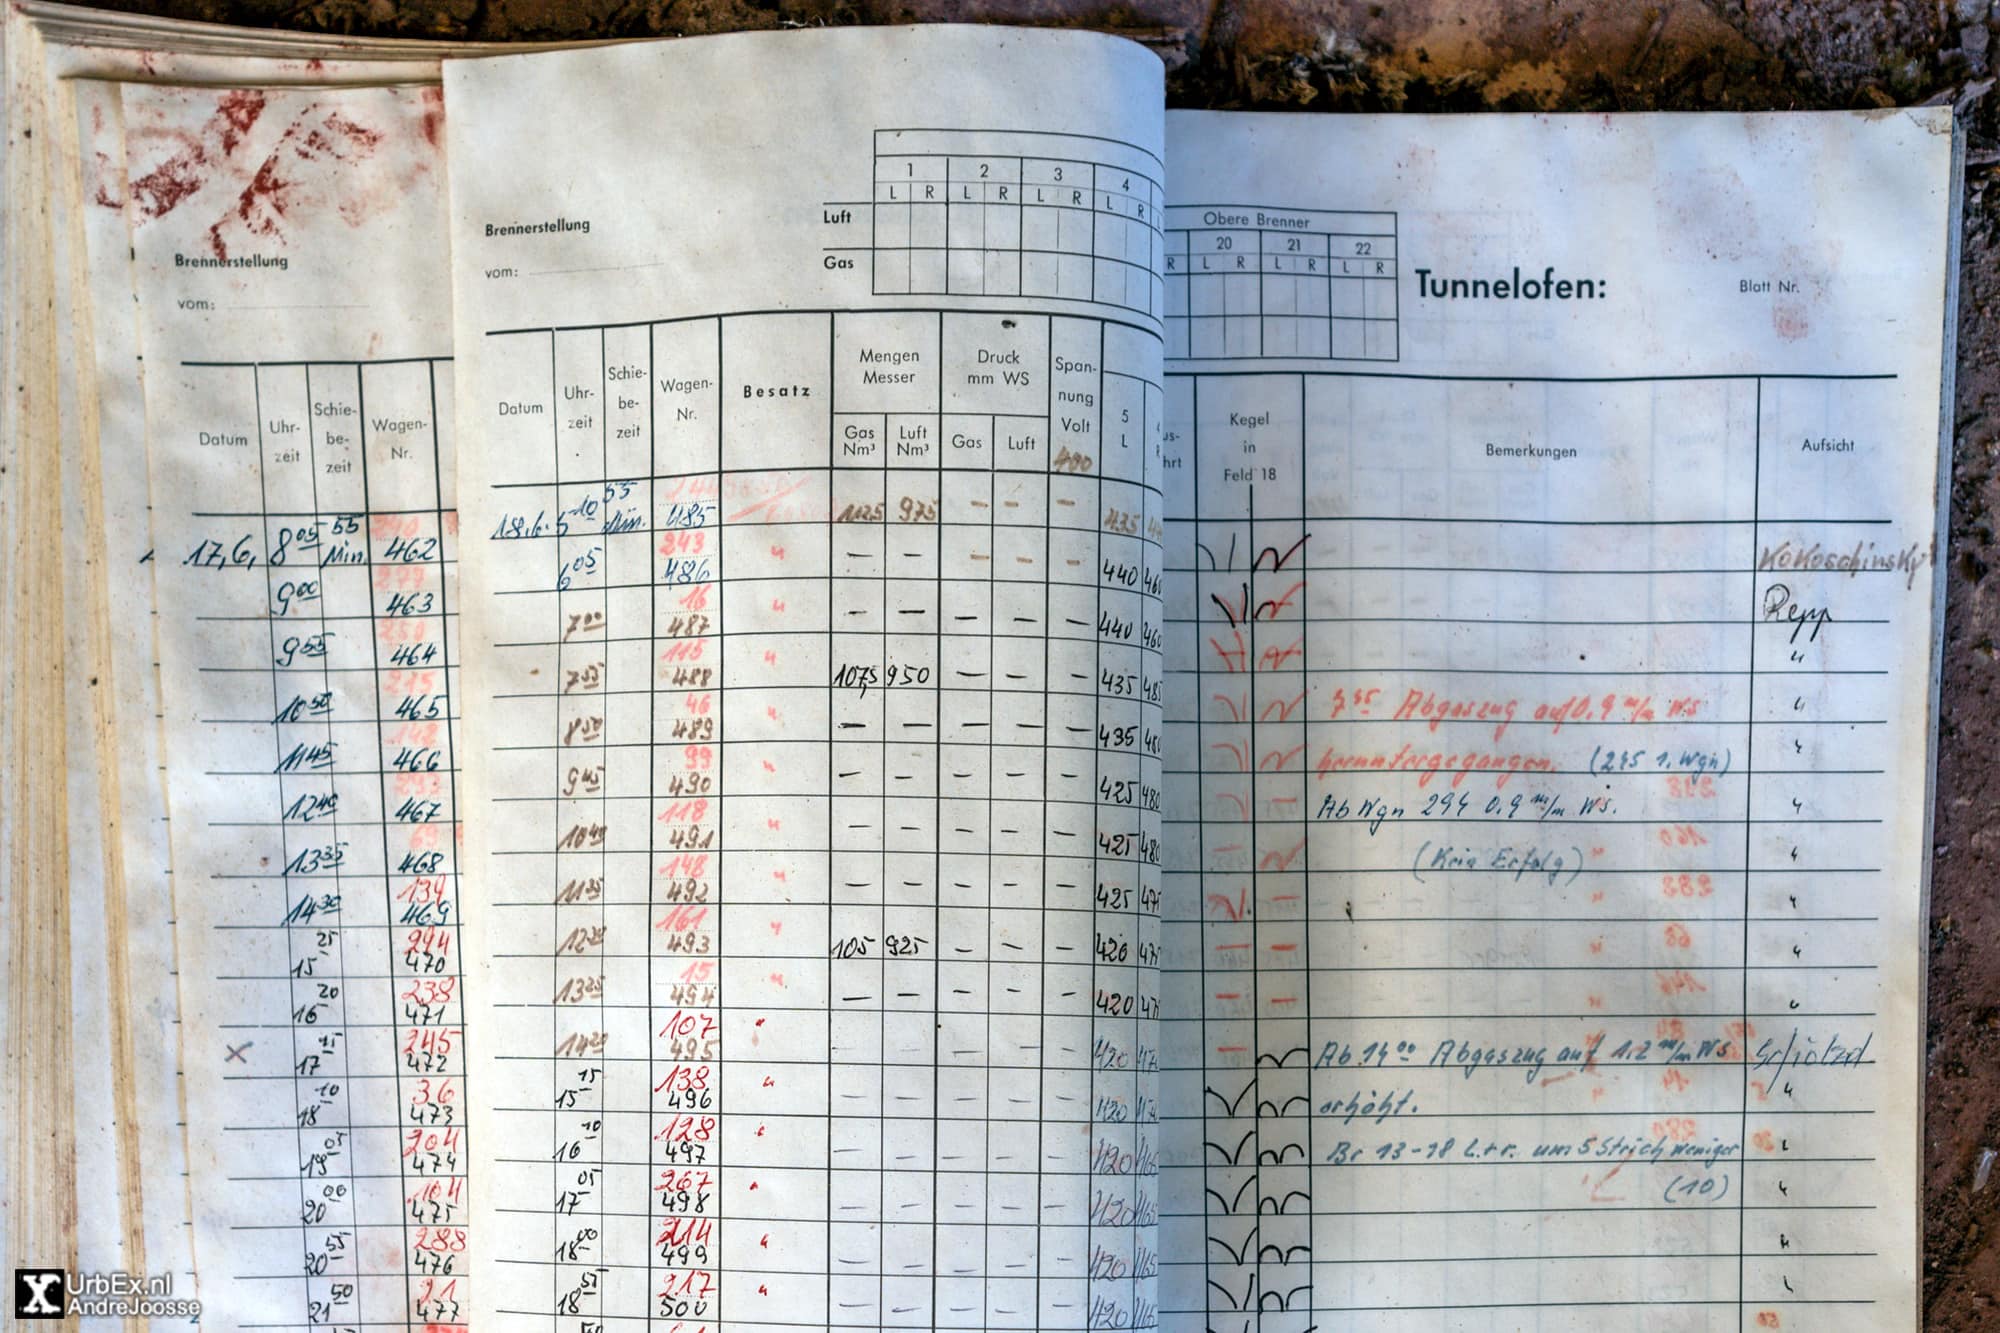 Brennerstellung
vom:
Datum Uhr-zeit Schie-be-zeit Wagen-Nr.
17,6, 8 05 55 Min. 462
9 00 463
9 55 464
10 50 215 465
11 45 466
12 40 467
13 35 69 468
14 30 139 469
15 25 294 470
16 20 238 471
x 17 15 245 472
18 10 36 473
19 05 204 474
20 00 104 475
20 55 288 476
21 50 21 477
1 2 3 4
L R L R L R L R
Brennerstellung
Luft
vom:
Gas
Datum Uhr-zeit Schie-be-zeit Wagen-Nr. Besatz Mengen Messer Druck mm WS Span-nung Volt 5
Gas Nm³ Luft Nm³ Gas Luft 400 L
18.6. 5 10 55 Min. 485 1125 975 — — — 435
6 05 243 486 " — — — — — 440 460
7 00 16 487 " — — — — — 440 460
7 55 115 488 " 1075 950 — — — 435 485
8 50 46 489 " — — — — — 435 480
9 45 99 490 " — — — — — 425 480
10 40 118 491 " — — — — — 425 480
11 35 148 492 " — — — — — 425 475
12 30 161 493 " 105 925 — — — 420 475
13 25 15 494 " — — — — — 420
14 20 107 495 " — — — — — 420
15 15 138 496 " — — — — — 420
16 10 128 497 " — — — — — 420 465
17 05 267 498 " — — — — — 420 465
18 00 214 499 " — — — — — 420 465
18 55 217 500 " — — — — — 420 465
Obere Brenner
20 21 22
R L R L R L R
Tunnelofen:
Blatt Nr.
Kegel in Feld 18 Bemerkungen Aufsicht
Kokoschinsky
Repp
"
7 35 Abgaszug auf 0.9 m/m WS "
heruntergegangen. (245 1. Wgn) "
Ab Wgn 294 0.9 m/m WS. "
(Kein Erfolg) "
"
"
"
Ab 14 00 Abgaszug auf 1.2 m/m WS
erhöht. "
Br 13-18 L.+r. um 5 Strich weniger "
(10) "
"
"
UrbEx.nl
AndreJoosse